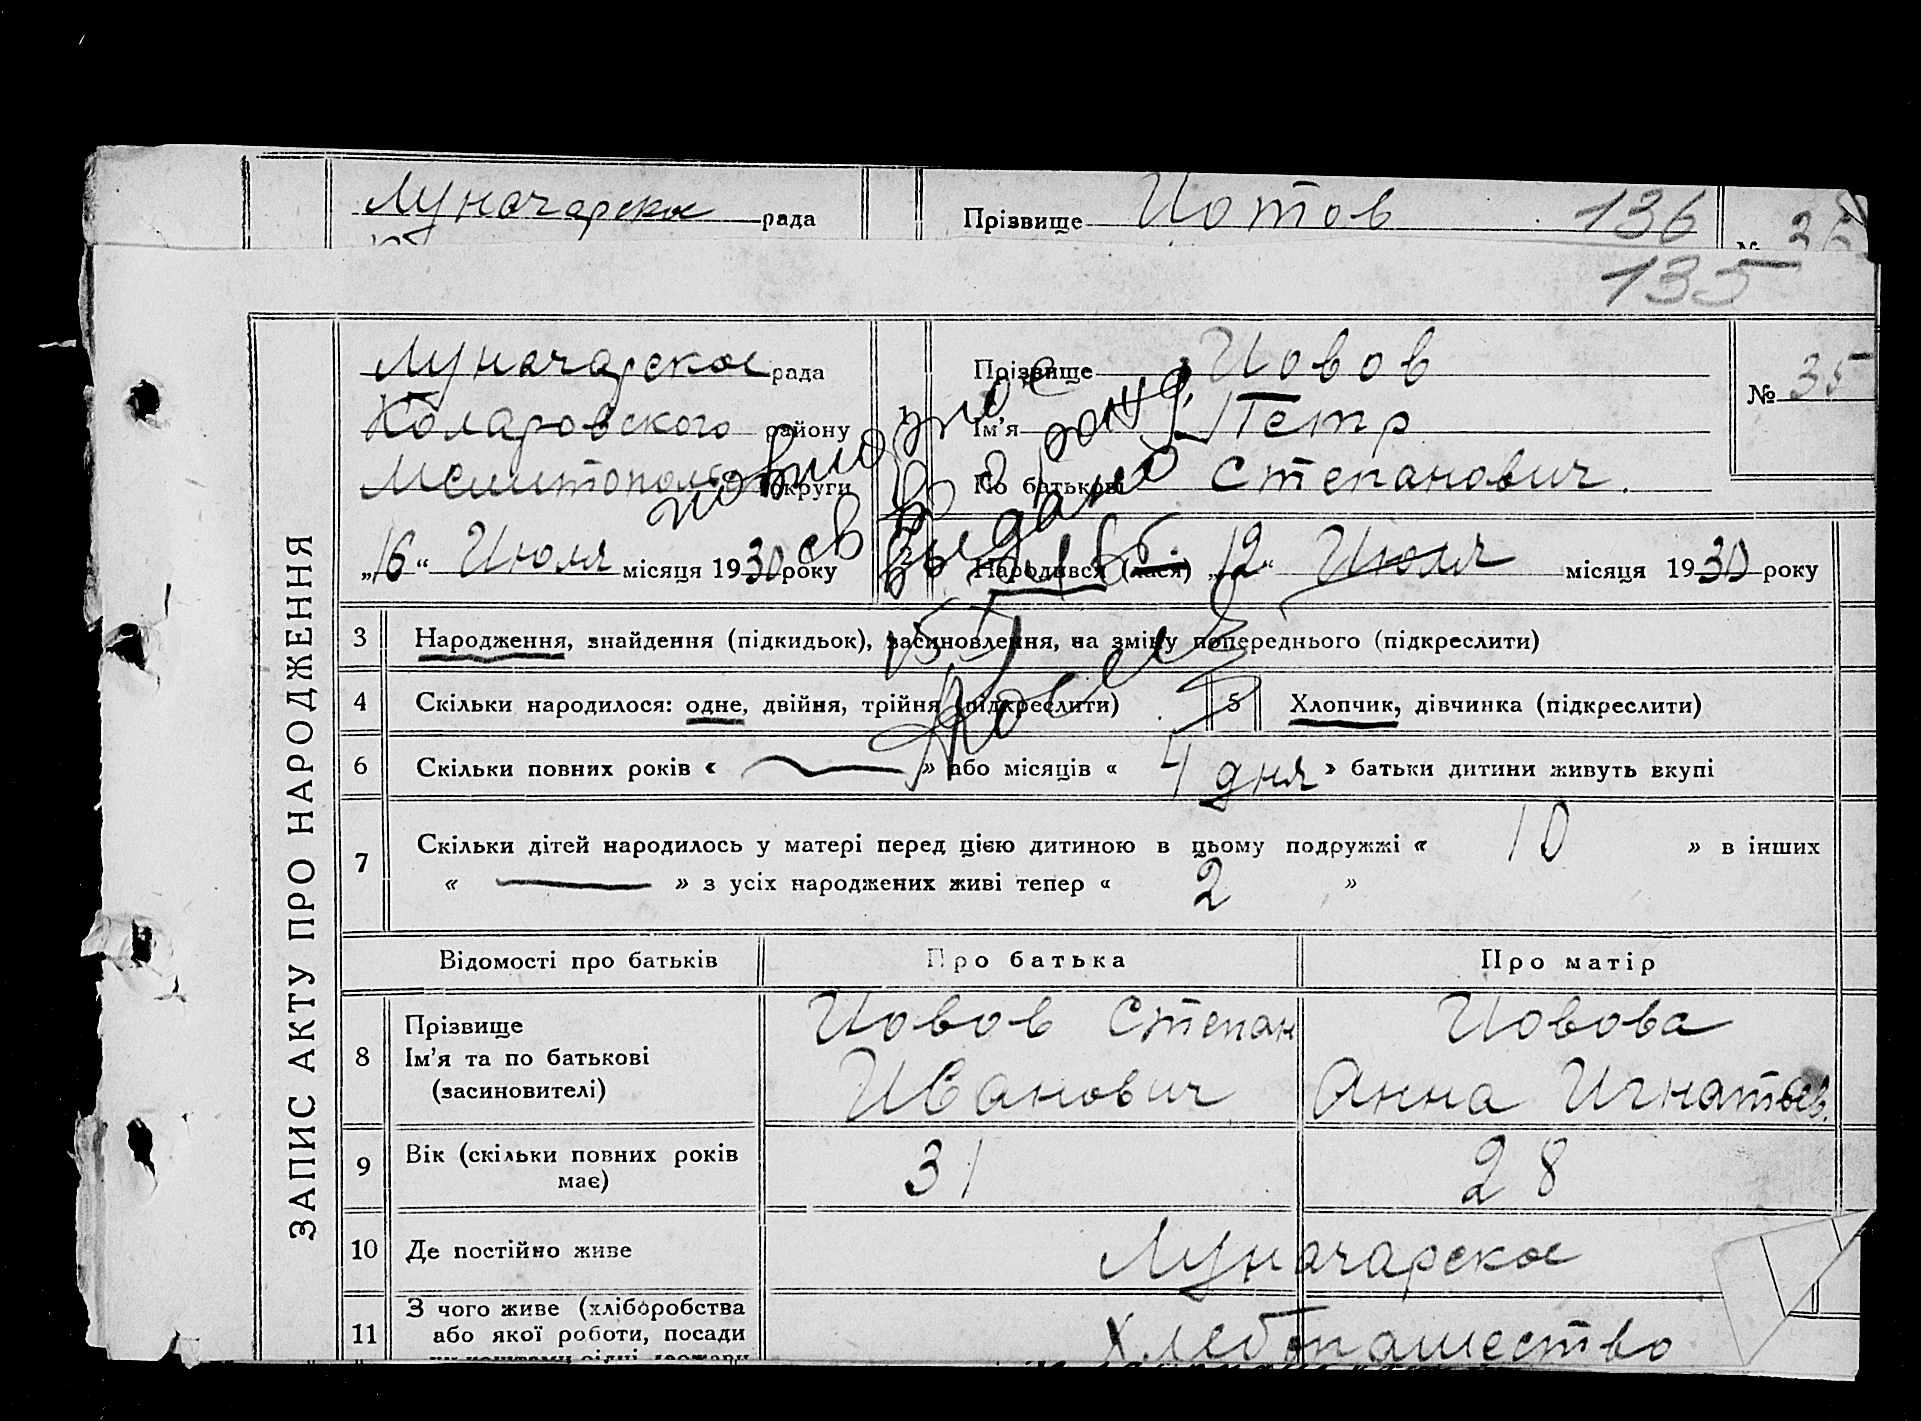 Луначарская рада Прізвище Иотов 136
№
135
Луначарское рада Прізвище Иовов
№ 35
Коларовского району Ім'я Петр
Мелитополь округи По батькові Степанович.
повторное
св во выдано
„16“ Июля місяця 1930 року Народився (лася) „12“ Июля місяця 1930 року
ЗАПИС АКТУ ПРО НАРОДЖЕННЯ
3 Народження, знайдення (підкидьок), засиновлення, на зміну попереднього (підкреслити)
4 Скільки народилося: одне, двійня, трійня (підкреслити) 5 Хлопчик, дівчинка (підкреслити)
6 Скільки повних років « » або місяців « 4 дня » батьки дитини живуть вкупі
7 Скільки дітей народилось у матері перед цією дитиною в цьому подружжі « 10 » в інших
« » з усіх народжених живі тепер « 2 »
Відомості про батьків Про батька Про матір
8 Прізвище Иовов Степан Иовова
Ім'я та по батькові Иванович Анна Игнатьев.
(засиновителі)
9 Вік (скільки повних років 31 28
має)
10 Де постійно живе Луначарское
11 З чого живе (хліборобства Хлебопашество
або якої роботи, посади